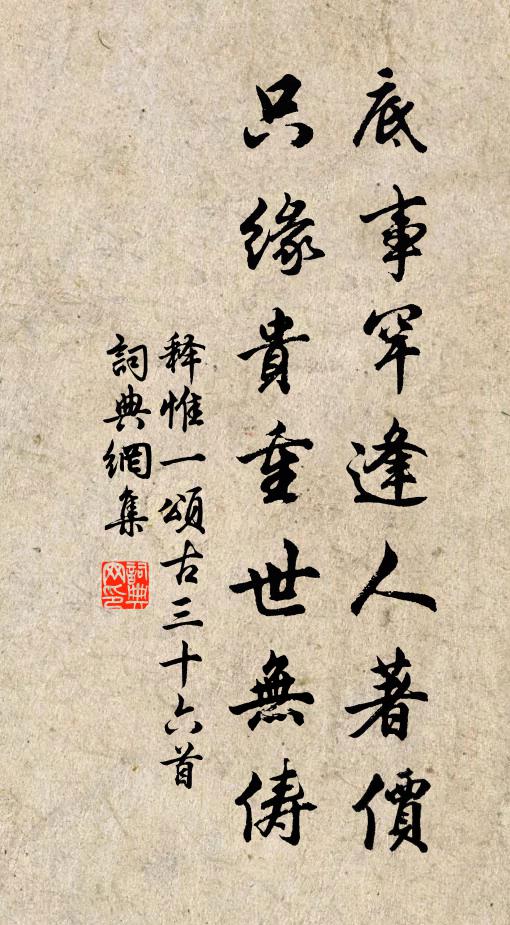 底事罕逢人著價
只緣貴重世無儔
释惟一頌古三十六首
詞典網集
詞典网印